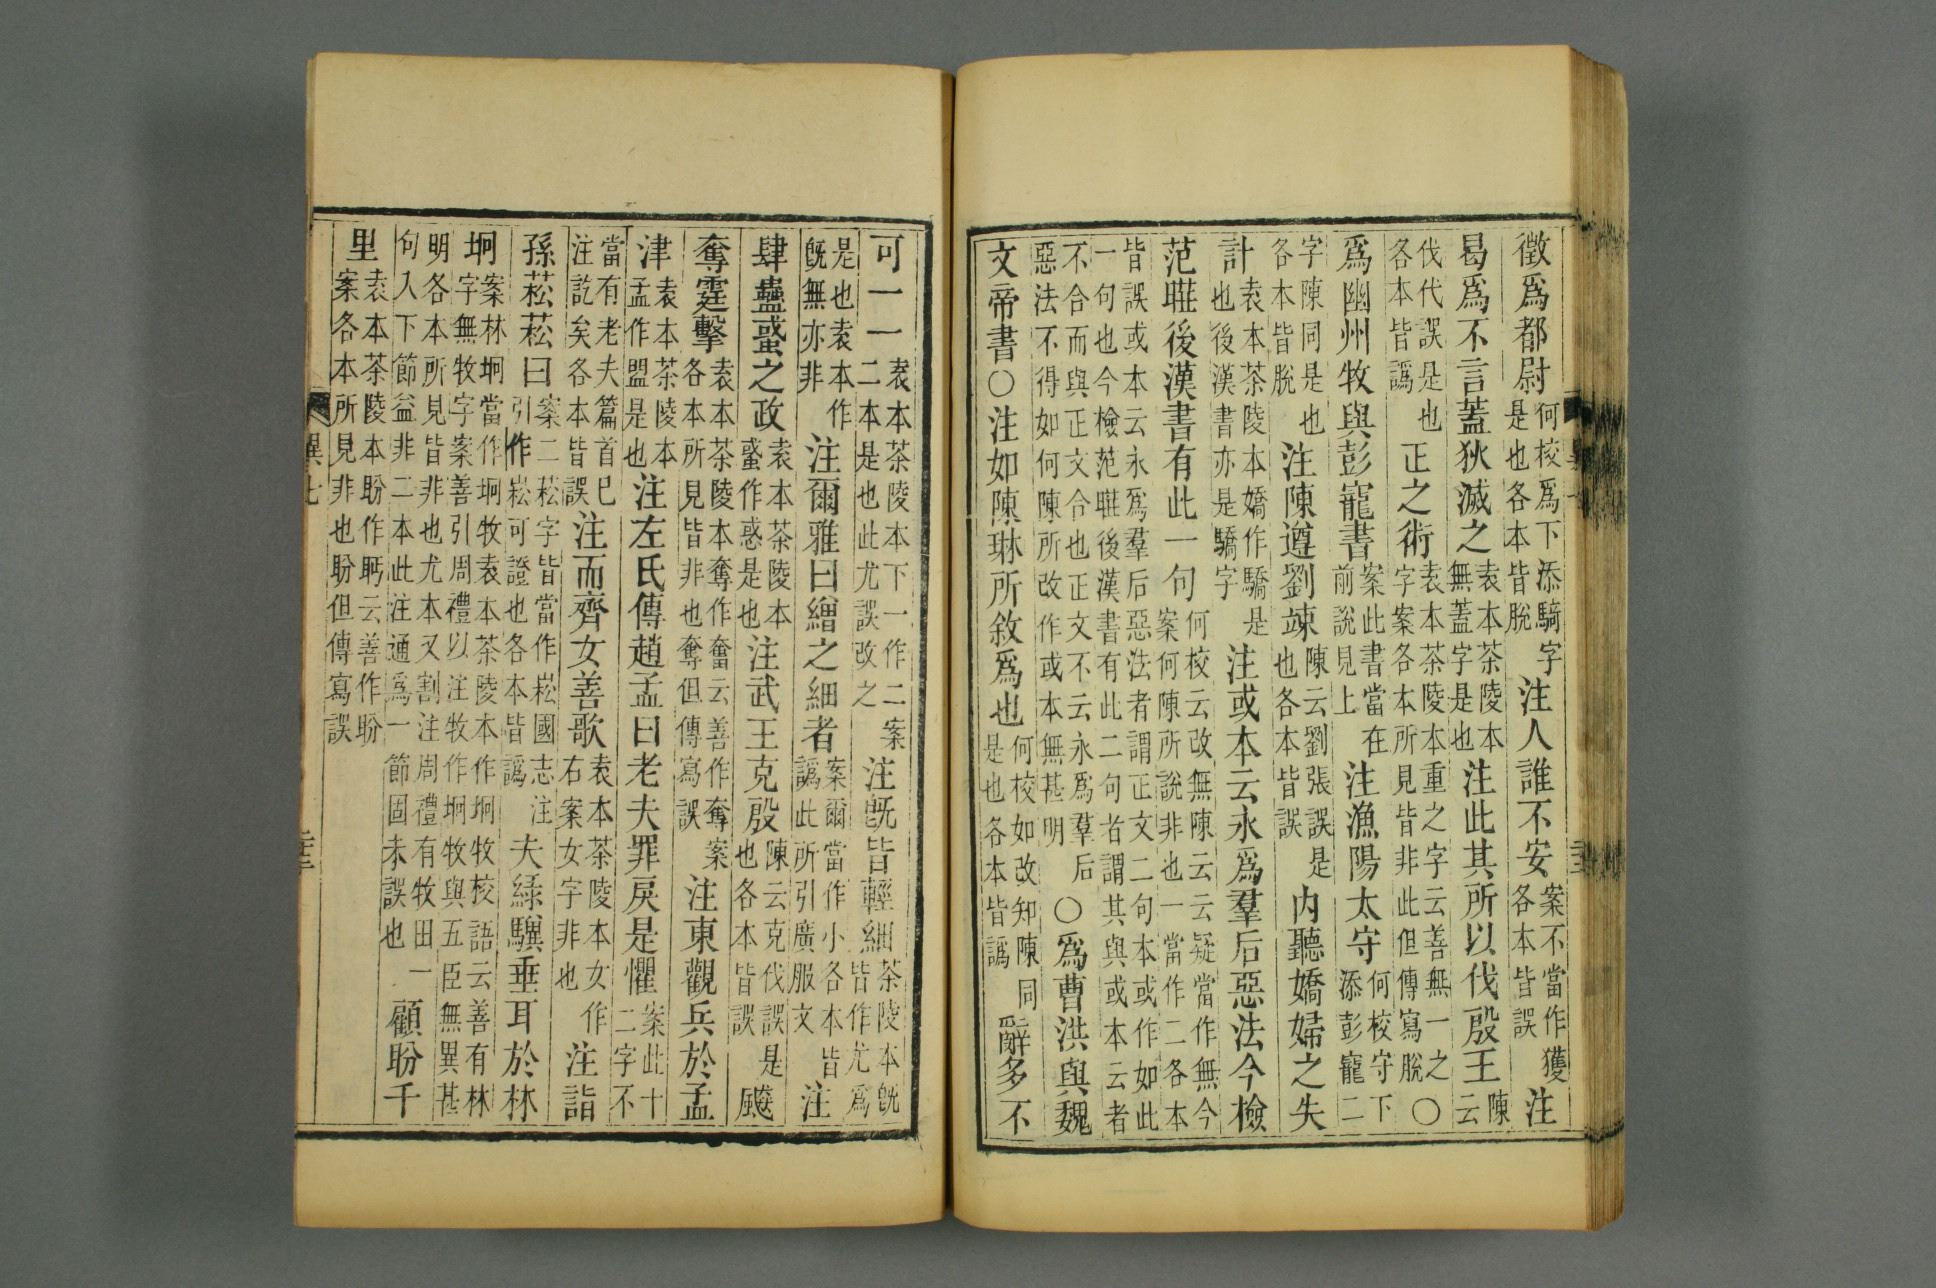 徵為都尉何校為下添騎字是也各本皆脫注人誰不安案不當作獲各本皆誤注
曷為不言蓋狄滅之袁本茶陵本無蓋字是也注此其所以伐殷王陳云
伐代誤是也各本皆譌正之術袁本茶陵本重之字云善無一之字案各本所見皆非此但傳寫脫○
為幽州牧與彭寵書案此書當在前說見上注漁陽太守何校守下添彭寵二
字陳同是也各本皆脫注陳遵劉竦陳云劉張誤是也各本皆誤內聽嬌婦之失
計袁本茶陵本嬌作驕是也後漢書亦是驕字注或本云永為羣后惡法今檢
范曄後漢書有此一句何校云改無陳云云疑當作無今案何陳所說非也一當作二各本
皆誤或本云永為羣后惡法者謂正文二句本或作如此一句也今檢范曄後漢書有此二句者謂其與或本云者
不合而與正文合也正文不云永為羣后惡法不得如何陳所改作或本無甚明○為曹洪與魏
文帝書○注如陳琳所敘為也何校如改知陳同是也各本皆譌辭多不
可一一袁本茶陵本下一作二案二本是也此尤誤改之注旣皆輕細茶陵本旣皆作尤為
是也袁本作旣無亦非注爾雅曰繒之細者案爾當作小各本皆譌此所引廣服文注
肆蠱蜮之政袁本茶陵本蜮作惑是也注武王克殷陳云克伐誤是也各本皆誤飈
奪霆擊袁本茶陵本奪作奮云善作奪案各本所見皆非也奪但傳寫誤注東觀兵於孟
津袁本茶陵本孟作盟是也注左氏傳趙孟曰老夫罪戾是懼案此十二字不
當有老夫篇首已注訖矣各本皆誤注而齊女善歌袁本茶陵本女作右案女字非也注詣
孫菘菘曰案二菘字皆當作崧國志注引作崧可證也各本皆譌夫綠驥垂耳於林
坰案林坰當作坰牧袁本茶陵本作坰牧校語云善有林字無牧字案善引周禮以注牧作坰牧與五臣無異甚
明各本所見皆非也尤本又割注周禮有牧田一句入下節益非二本此注通為一節固未誤也顧盼千
里袁本茶陵本盼作眄云善作盼案各本所見非也盼但傳寫誤
異七